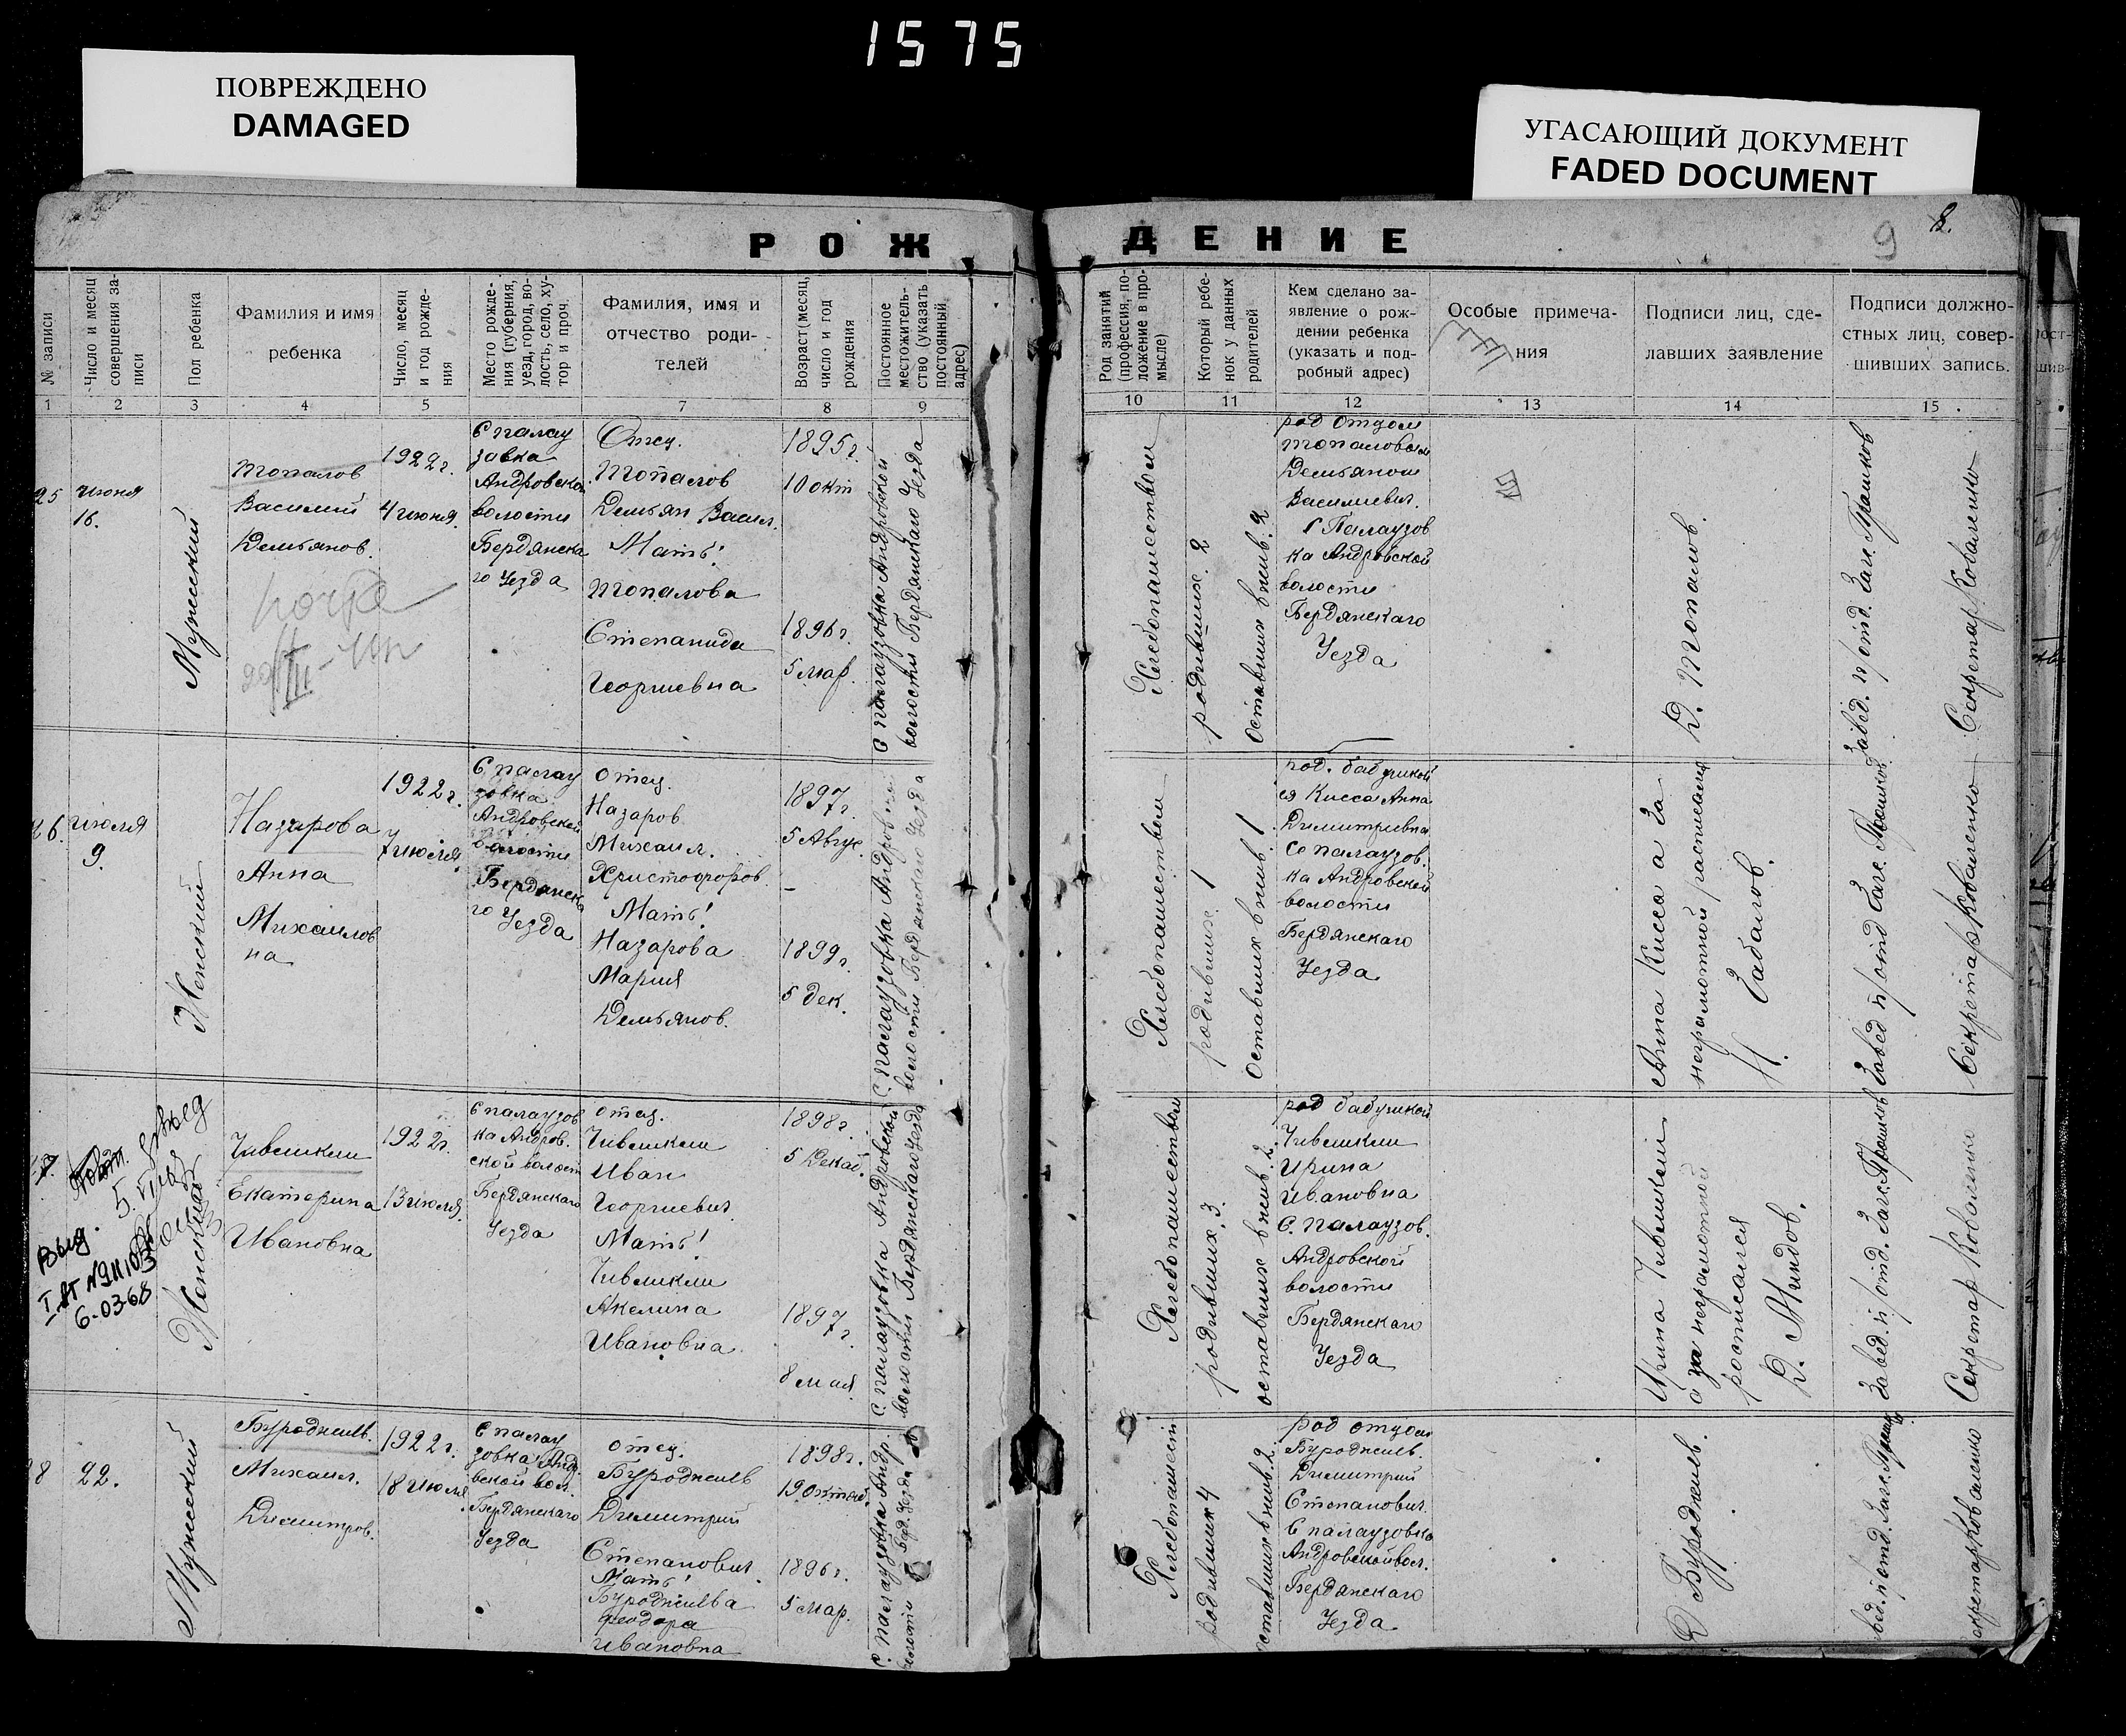 1575
ПОВРЕЖДЕНО
DAMAGED
УГАСАЮЩИЙ ДОКУМЕНТ
FADED DOCUMENT
РОЖДЕНИЕ
9
8.
№ записи
Число и месяц совершения за-
писи
Пол ребенка
Фамилия и имя
ребенка
Число, месяц
и год рожде-
ния
Место рожде-
ния (губерния,
уезд, город, во-
лость, село, ху-
тор и проч.
Фамилия, имя и
отчество роди-
телей
Возраст (месяц,
число и год
рождения
Постоянное
местожитель-
ство (указать
постоянный
адрес)
Род занятий
(профессия, по-
ложение в про-
мысле)
Который ребе-
нок у данных
родителей
Кем сделано за-
явление о рож-
дении ребенка
(указать и под-
робный адрес)
Особые примеча-
ния
Подписи лиц, сде-
лавших заявление
Подписи должно-
стных лиц, совер-
шивших запись.
1
2
3
4
5
6
7
8
9
10
11
12
13
14
15
25
июня
16.
Мужеский
Топалов
Василий
Демьянов.
1922г.
4 июня.
С палау
зовка
Андровской
волости
Бердянска
го Уезда
Отец.
Топалов
Демьян Васил.
Мать!
Топалова
Степанида
Георгиевна
1895г.
10 окт
1896г.
5 мар.
С палаузовка Андровской
волости Бердянскаго Уезда
Хлебопашеством
родившихся 2
Оставшихся в жив. 2
род отцом
Топаловым
Демьяном
Василиевич.
с Палаузов
ка Андровской
волости
Бердянскаго
Уезда
Д. Топалов.
Завед. п/отд. Загс. Прашков
Секретар Коваленко
26.
июля
9.
Женский
Назарова
Анна
Михаилов
на
1922г.
7 июля
С палау
зовка
Андровской
волости
Бердянска
го Уезда
отец.
Назаров
Михаил.
Христофоров.
Мать!
Назарова
Мария
Демьянов.
1897г.
5 Авгус.
1899г.
5 дек.
С. палаузовка Андровской
волости Бердянскаго Уезда
Хлебопашеством
родившихся 1
Оставшихся в жив. 1
род. бабушкой
ея Кисса Анна
Димитриевна
со палаузов.
ка Андровской
волости
Бердянскаго
Уезда
Анна Кисса а за
неграмотной расписался
Н. Забалов.
Завед п/отд Загс. Прашков
Секретар Коваленко
выд.
6.03-68
Женский
Чивеликли
Екатерина
Ивановна
1922г.
13 июля.
С палаузов
ка Андров.
ской волост
Бердянскаго
Уезда
отец.
Чивеликли
Иван
Георгиевич.
Мать!
Чивеликли
Акелина
Ивановна
1898г.
5 Декаб.
1897г.
8 мая
С. палаузовка Андровской
волости Бердянскаго Уезда
Хлебопашеством
родивших. 3.
оставшихся в жив. 2
род бабушкой
Чивеликли
Ирина
Ивановна
С. палаузов.
Андровской
волости
Бердянскаго
Уезда
Ирина Чивеликли
а за неграмотной
росписался
Д. Миндов.
Завед. п/отд. Загс. Прашков
Секретар Коваленко
8
22.
Мужеский
Бурджиев.
Михаил.
Димитров.
1922г.
18 июля
С палау
зовка Андр
вской вол.
Бердянскаго
Уезда
отец.
Димитрий
Степанович.
Мать!
Феодора
Ивановна
1898г.
19 октяб.
1896г.
5 мар.
С. палаузовка Андр.
волости Берд. Уезда
Хлебопашест
родившихся 4
оставшихся в жив. 2
род отцом
Димитрий
Степанович.
С палаузовка
Андровской вол.
Бердянскаго
Уезда
Секретар Коваленко